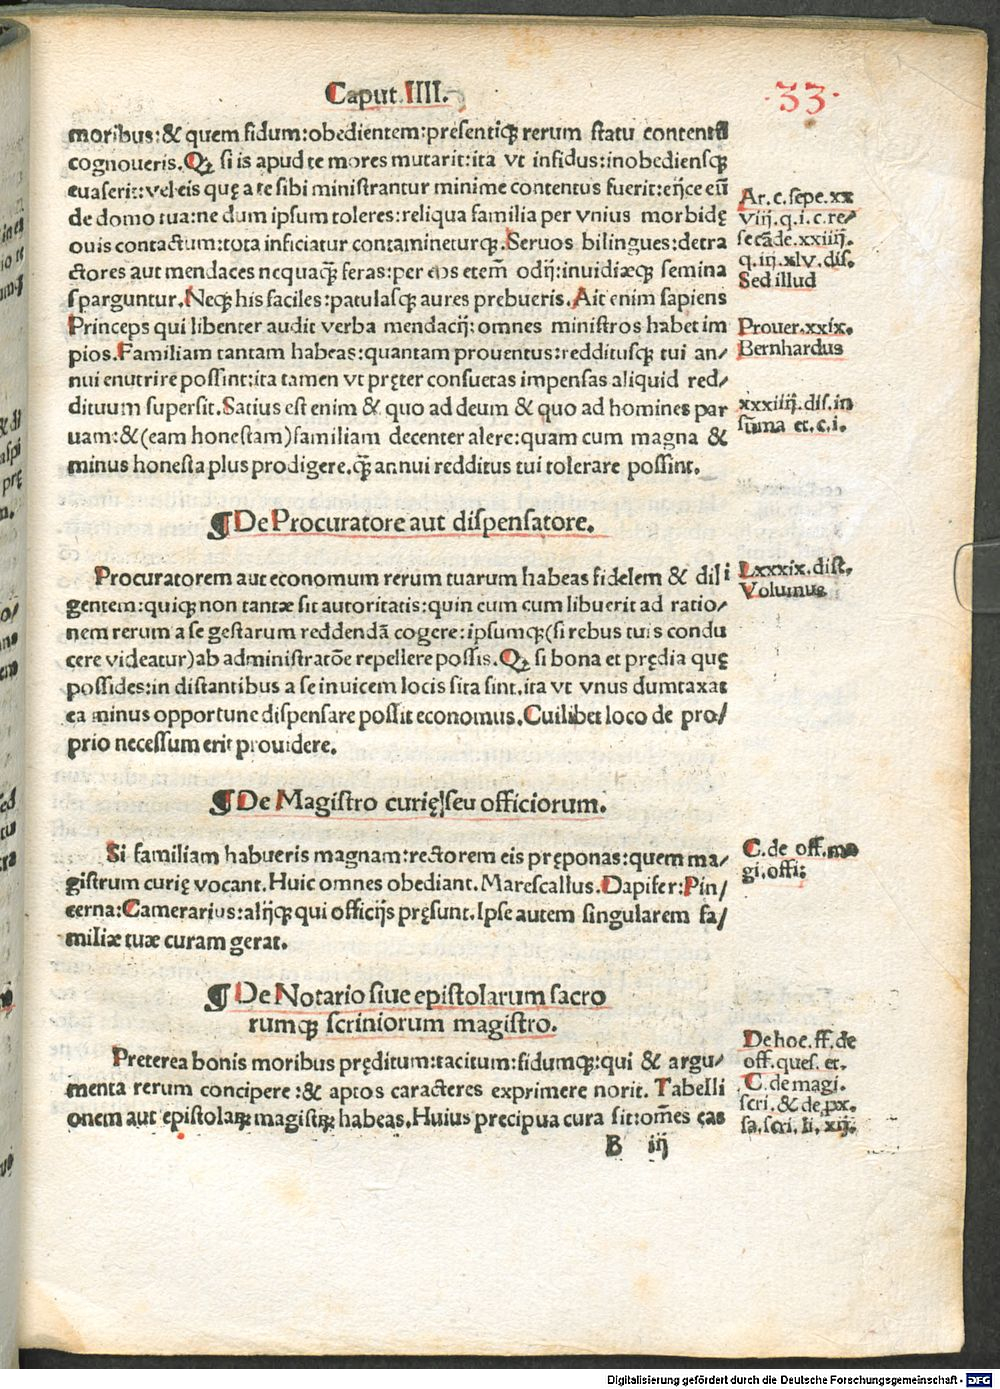 Caput IIII.
·33·
moribus:& quem fidum:obedientem:presentiq̃ rerum statu contentũ
cognoueris.Qꝫ si is apud te mores mutarit:ita vt infidus:inobediensq̃
euaserit:vel eis quę a te sibi ministrantur minime contentus fuerit:eijce eũ
de domo tua:ne dum ipsum toleres:reliqua familia per vnius morbidę
ouis contactum:tota inficiatur contamineturq̃.Seruos bilingues:detra
ctores aut mendaces nequaq̃ feras:per eos etem̃ odij:inuidiæq̃ semina
sparguntur.Neq̃ his faciles:patulasq̃ aures prebueris.Ait enim sapiens
Princeps qui libenter audit verba mendacij:omnes ministros habet im
pios.Familiam tantam habeas:quantam prouentus:redditusq̃ tui an/
nui enutrire possint:ita tamen vt pręter consuetas impensas aliquid red/
dituum supersit.Satius est enim & quo ad deum & quo ad homines par
uam:&(eam honestam)familiam decenter alere:quam cum magna &
minus honesta plus prodigere.q̃ annui redditus tui tolerare possint.
Ar.c.sepe.xx
viij.q.i.c.re/
secãde.xxiiij.
q.iij.xlv.dis.
Sed illud
Prouer.xxix.
Bernhardus
xxxiiij.dis.in
sũma et.c.i.
¶De Procuratore aut dispensatore.
Procuratorem aut economum rerum tuarum habeas fidelem & dili
gentem:quiq̃ non tantæ sit autoritatis:quin eum cum libuerit ad ratio/
nem rerum a se gestarum reddendã cogere:ipsumq̃(si rebus tuis condu
cere videatur)ab administratõe repellere possis.Qꝫ si bona et prędia quę
possides:in distantibus a se inuicem locis sita sint.ita vt vnus dumtaxat
ea minus opportune dispensare possit economus.Cuilibet loco de pro/
prio necessum erit prouidere.
Lxxxix.dist.
Volumus
¶De Magistro curię|seu officiorum.
Si familiam habueris magnam:rectorem eis pręponas:quem ma/
gistrum curię vocant.Huic omnes obediant.Marescallus.Dapifer:Pin/
cerna:Camerarius:alijq̃ qui officijs pręsunt.Ipse autem singularem fa/
miliæ tuæ curam gerat.
C.de off.ma
gi.offi:
¶De Notario siue epistolarum sacro
rumq̃ scriniorum magistro.
Preterea bonis moribus pręditum:tacitum:fidumq̃:qui & argu/
menta rerum concipere:& aptos caracteres exprimere norit. Tabelli
onem aut epistolaꝝ magistꝝ habeas.Huius precipua cura sit:om̃es eas
De hoc.ff.de
off.ques.et.
C.de magi.
scri.& de.px.
sa.scri.li.xij.
B iij
Digitalisierung gefördert durch die Deutsche Forschungsgemeinschaft - DFG